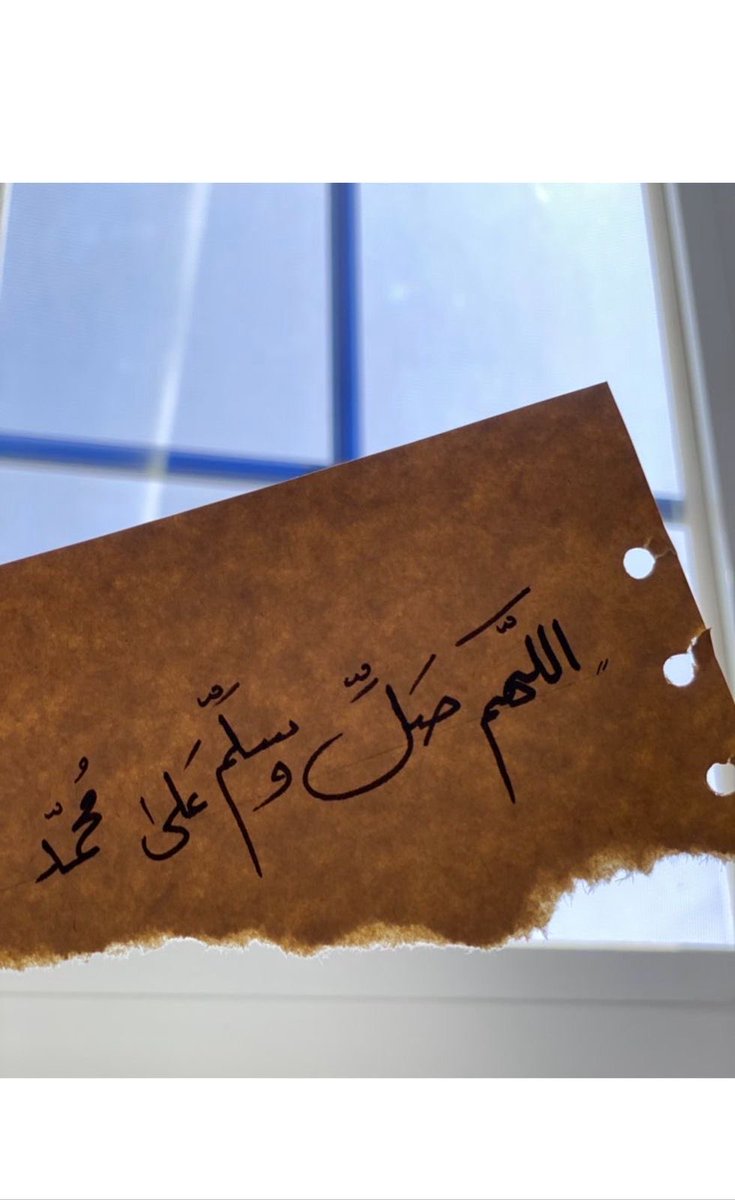 "اللهمّ صَلِّ وسلِّم عَلىٰ مُحمّد